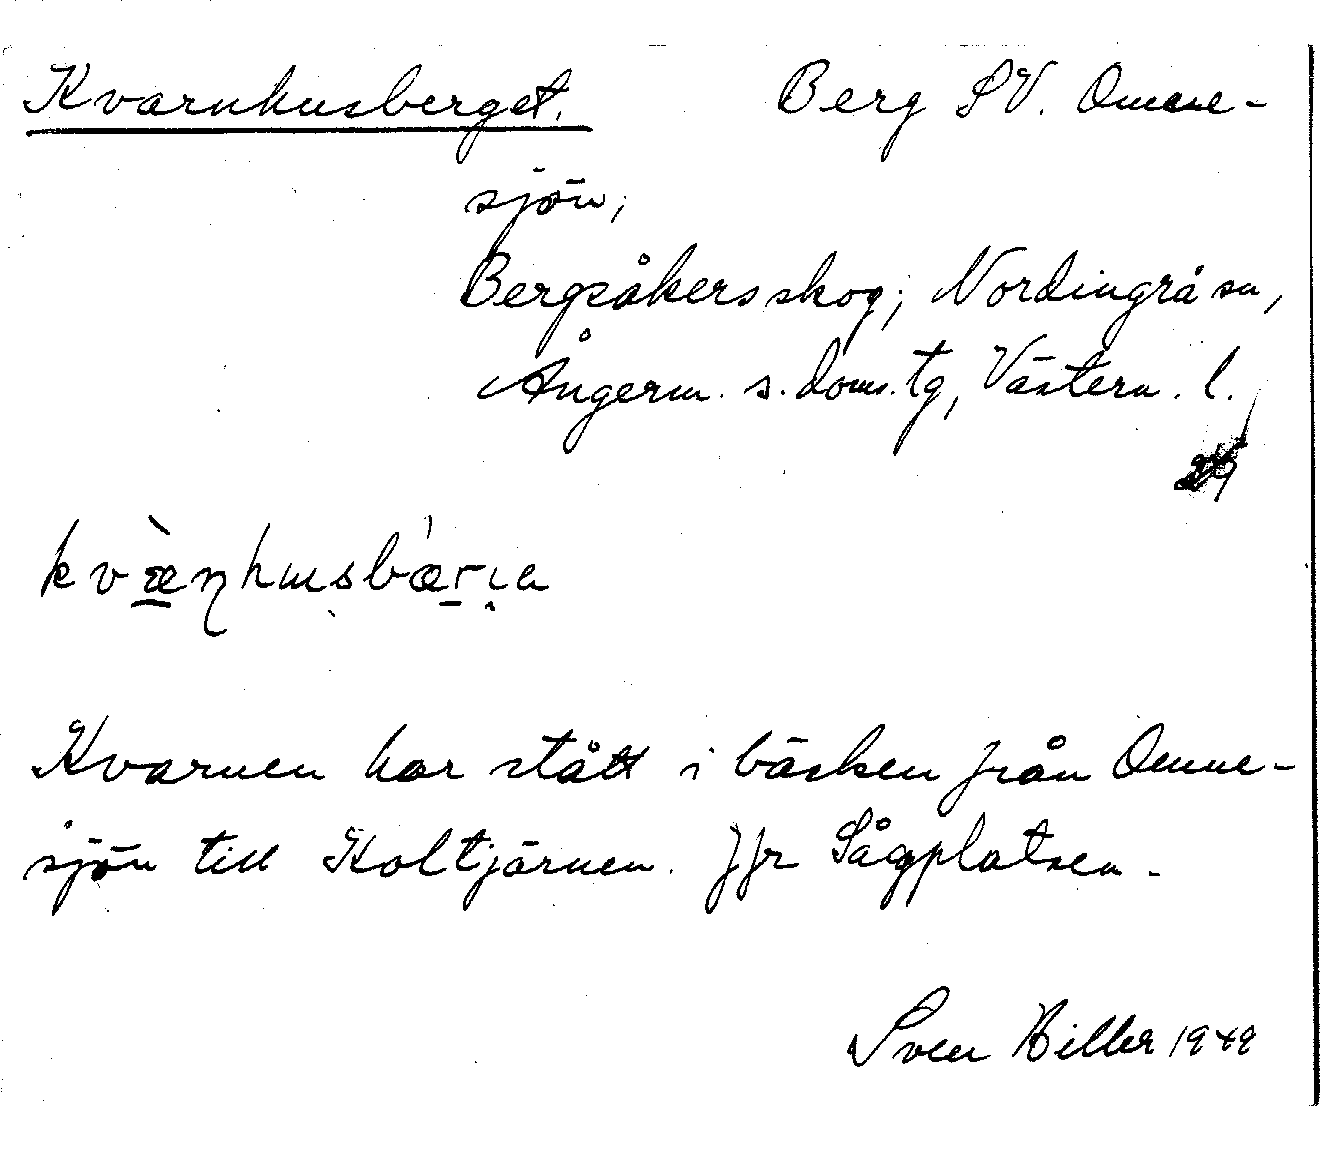 Kvarnhusberget. Berg SV. Omne-
sjön,
Bergsåkersskog; Nordingrå sn,
Ångerm. s. doms. tg, Västern. l.
Kvarnen har stått i bäcken från Omne-
sjön till Koltjärnen. Jfr Sågplatsen.
Sven Hiller 1949